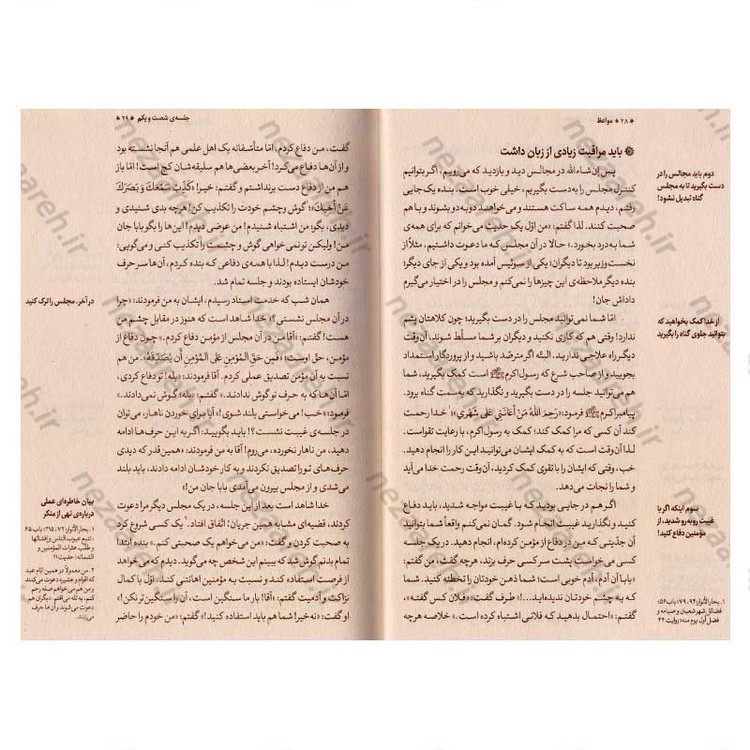 ۲۸ * مواعظ
باید مراقبت زیادی از زبان داشت
پس إن شاءالله در مجالس دید و بازدید که می‌رویم، اگر بتوانیم
کنترل مجلس را به‌دست بگیریم، خیلی خوب است. بنده یک‌جایی
رفتم، دیدم همه ساکت هستند و می‌خواهند دوبه‌دو باشوند و
صحبت کنند. لذا گفتم: «من اوّل یک حدیث می‌خوانم که برای همه‌ی
شما به‌درد بخورد.» حالا در آن مجلس که ما دعوت داشتیم، مثلاً از
نخست‌وزیر بود تا دیگران؛ یکی از سوئیس آمده بود و یکی از جای دیگر؛
بنده دیگر ملاحظه‌ی این چیزها را نمی‌کنم و مجلس را در اختیار می‌گیرم
داداش جان!
امّا شما نمی‌توانید مجلس را در دست بگیرید؛ چون کلاهتان پشم
ندارد! وقتی هم که کاری نکنید و دیگران بر شما مسلّط شوند، آن‌وقت
دیگر راه علاجی ندارید. البتّه اگر مترصّد باشید و از پروردگار استمداد
بجویید و از صاحب شرع که رسول اکرم ﷺ است کمک بگیرید، شما
هم می‌توانید جلسه را در دست بگیرید و نگذارید که به‌سمت گناه برود.
پیامبر اکرم ﷺ فرمود: «رَحِمَ اللّهُ مَنْ أَعانَنی عَلی شَهْری»؛ ۱ خدا رحمت
کند آن کسی که مرا کمک کند؛ کمک به رسول اکرم، با رعایت تقواست.
لذا آن‌وقت است که به کمک ایشان می‌توانید این کار را انجام دهید.
خب، وقتی که ایشان را با تقوی کمک کردید، آن‌وقت رحمت خدا می‌آید
و شما را نجات می‌دهد.
اگر هم در جایی بودید که با غیبت مواجه شدید، باید دفاع
کنید و نگذارید غیبت انجام شود. گمان نمی‌کنم واقعاً شما بتوانید
آن جدّیتی که من در دفاع از مؤمن کرده‌ام، انجام دهید. در یک جلسه
کسی می‌خواست پشت سر کسی حرف بزند، نگذاشتم. گفت، من گفتم:
«بابا آن آدم، آدم خوبی است؛ شما ذهن خودتان را تخطئه کنید. شما
که به چشم خودتان ندیده‌اید...!» طرف گفت: «فلان کس گفته.»
گفتم: «احتمال بدهید که فلانی اشتباه کرده است.» خلاصه هرچه
دوم باید مجالس را در
دست بگیرید تا به مجلس
گناه تبدیل نشود!
از خدا کمک بخواهید که
بتوانید جلوی گناه را بگیرید
سوم اینکه اگر با
غیبت روبه‌رو شدید، از
مؤمنین دفاع کنید!
۱. بحارالأنوار؛ ۹۴، ۷۹؛ باب ۵۶؛
فضائل شهر شعبان و صیامه و
فضل أوّل یوم منه؛ روایت ۴۲
جلسه‌ی شصت و یکم * ۲۹
گفت، من دفاع کردم، امّا متأسّفانه یک اهل علمی هم آنجا نشسته بود
و از آن‌ها دفاع می‌کرد! آخر بعضی‌ها هم سلیقه‌شان کج است! امّا باز
هم من از دفاع دست برنداشتم و گفتم: خیر! «کَذِّبْ سَمْعَكَ وَ بَصَرَكَ
عَنْ أَخیكَ»؛ ۱ گوش و چشم خودت را تکذیب کن! هرچه بدی شنیدی و
دیدی، بگو: من اشتباه شنیدم! من عوضی دیدم! این‌ها را بگو بابا جانِ
من! ولیکن تو نمی‌خواهی گوش و چشمت را تکذیب کنی و می‌گویی:
من درست دیدم! لذا با همه‌ی دفاعی که بنده کردم، آن‌ها سر حرف
خودشان ایستاده بودند و جلسه تمام شد.
همان شب که خدمت استاد رسیدم، ایشان به من فرمودند: «چرا
در آن مجلس نشستی؟» خدا شاهد است که هنوز در مقابل چشم من
هست! گفتم: «آقا من در آن مجلس از مؤمن دفاع کردم.» چون دفاع از
مؤمن، حق اوست؛ «فَمِن حَقِّ المُؤمِنِ عَلَی المُؤمِنِ أَن یُصَدِّقَهُ». من هم
نسبت به آن مؤمن تصدیق عملی کردم. آقا فرمودند: «بله! تو دفاع کردی،
امّا آن‌ها که به حرف تو گوش ندادند.» گفتم: «بله؛ گوش نمی‌دادند.»
فرمودند: «خب! می‌خواستی بلند شوی! آیا برای خوردن ناهار، می‌توان
در جلسه‌ی غیبت نشست؟! باید بگویید: اگر به این حرف‌ها ادامه
دهید، من ناهار نخورده، می‌روم! آقا به من فرمودند: «همین‌قدر که دیدی
حرف‌های تو را تصدیق نکردند و به کار خودشان ادامه دادند، باید بلند
می‌شدی و از مجلس بیرون می‌آمدی بابا جان من!»
خدا شاهد است بعد از این جلسه، در یک مجلس دیگر مرا دعوت
کردند، قضیه‌ای مشابه همین جریان؛ اتّفاق افتاد. ۲ یک کسی شروع کرد
به صحبت کردن و گفت: «من می‌خواهم یک صحبتی کنم.» بنده ابتدا
تمام بدنم گوش شد که ببینم این شخص چه می‌گوید. دیدم که می‌خواهد
از فرصت استفاده کند و نسبت به مؤمنین اهانتی کند. اوّل با کمال
نزاکت و آدمیت گفتم: «آقا! بار ما سنگین است، آن را سنگین‌تر نکن!»
او گفت: «نه خیر! شما هم باید استفاده کنید!» گفتم: «من خودم را حاضر
در آخر، مجلس را ترک کنید
بیان خاطره‌ای عملی
درباره‌ی نهی از منکر
۱. بحارالأنوار؛ ۷۲، ۲۱۵؛ باب ۶۵
تتبّع عیوب الناس و إفشائها
و طلب عثرات المؤمنین و
الشماتة؛ حدیث ۱۱
۲. من معمولاً در همین ایام عید
که اقوام و عشیره دعوت می‌کنند
و من هم می‌خواهم صله رحم
کنم، به تله می‌افتم. دیگران هم
دعوت می‌شوند و آن‌ها حرف
می‌زنند.
nezareh.ir